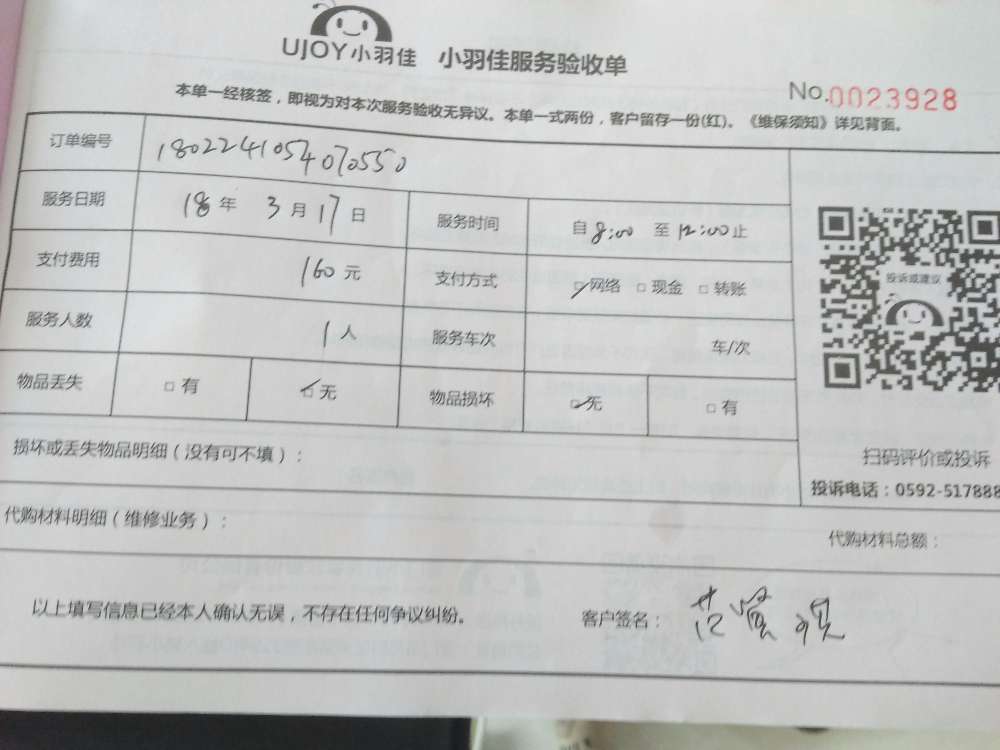 UJOY小羽佳 小羽佳服务验收单
No.0023928
本单一经核签，即视为对本次服务验收无异议。本单一式两份，客户留存一份(红)。《维保须知》详见背面。
订单编号 180224105407055​0
服务日期 18年 3月17日 服务时间 自8:00 至12:00止
支付费用 160元 支付方式 ☑网络 □现金 □转账
服务人数 1人 服务车次 车/次
物品丢失 □有 ☑无 物品损坏 ☑无 □有
投诉或建议
损坏或丢失物品明细（没有可不填）：
扫码评价或投诉
投诉电话：0592-517888
代购材料明细（维修业务）：
代购材料总额：
以上填写信息已经本人确认无误，不存在任何争议纠纷。 客户签名：